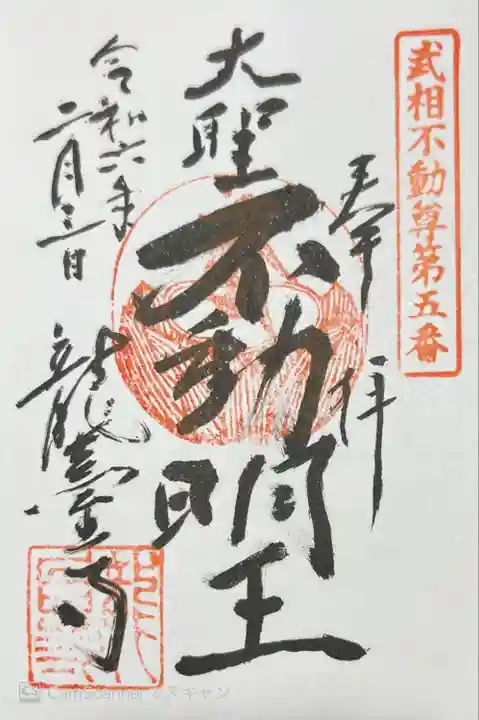 武相不動尊第五番
奉拝
大聖
不動明王
令和六年
二月三日
龍臺寺
CS CamScanner でスキャン